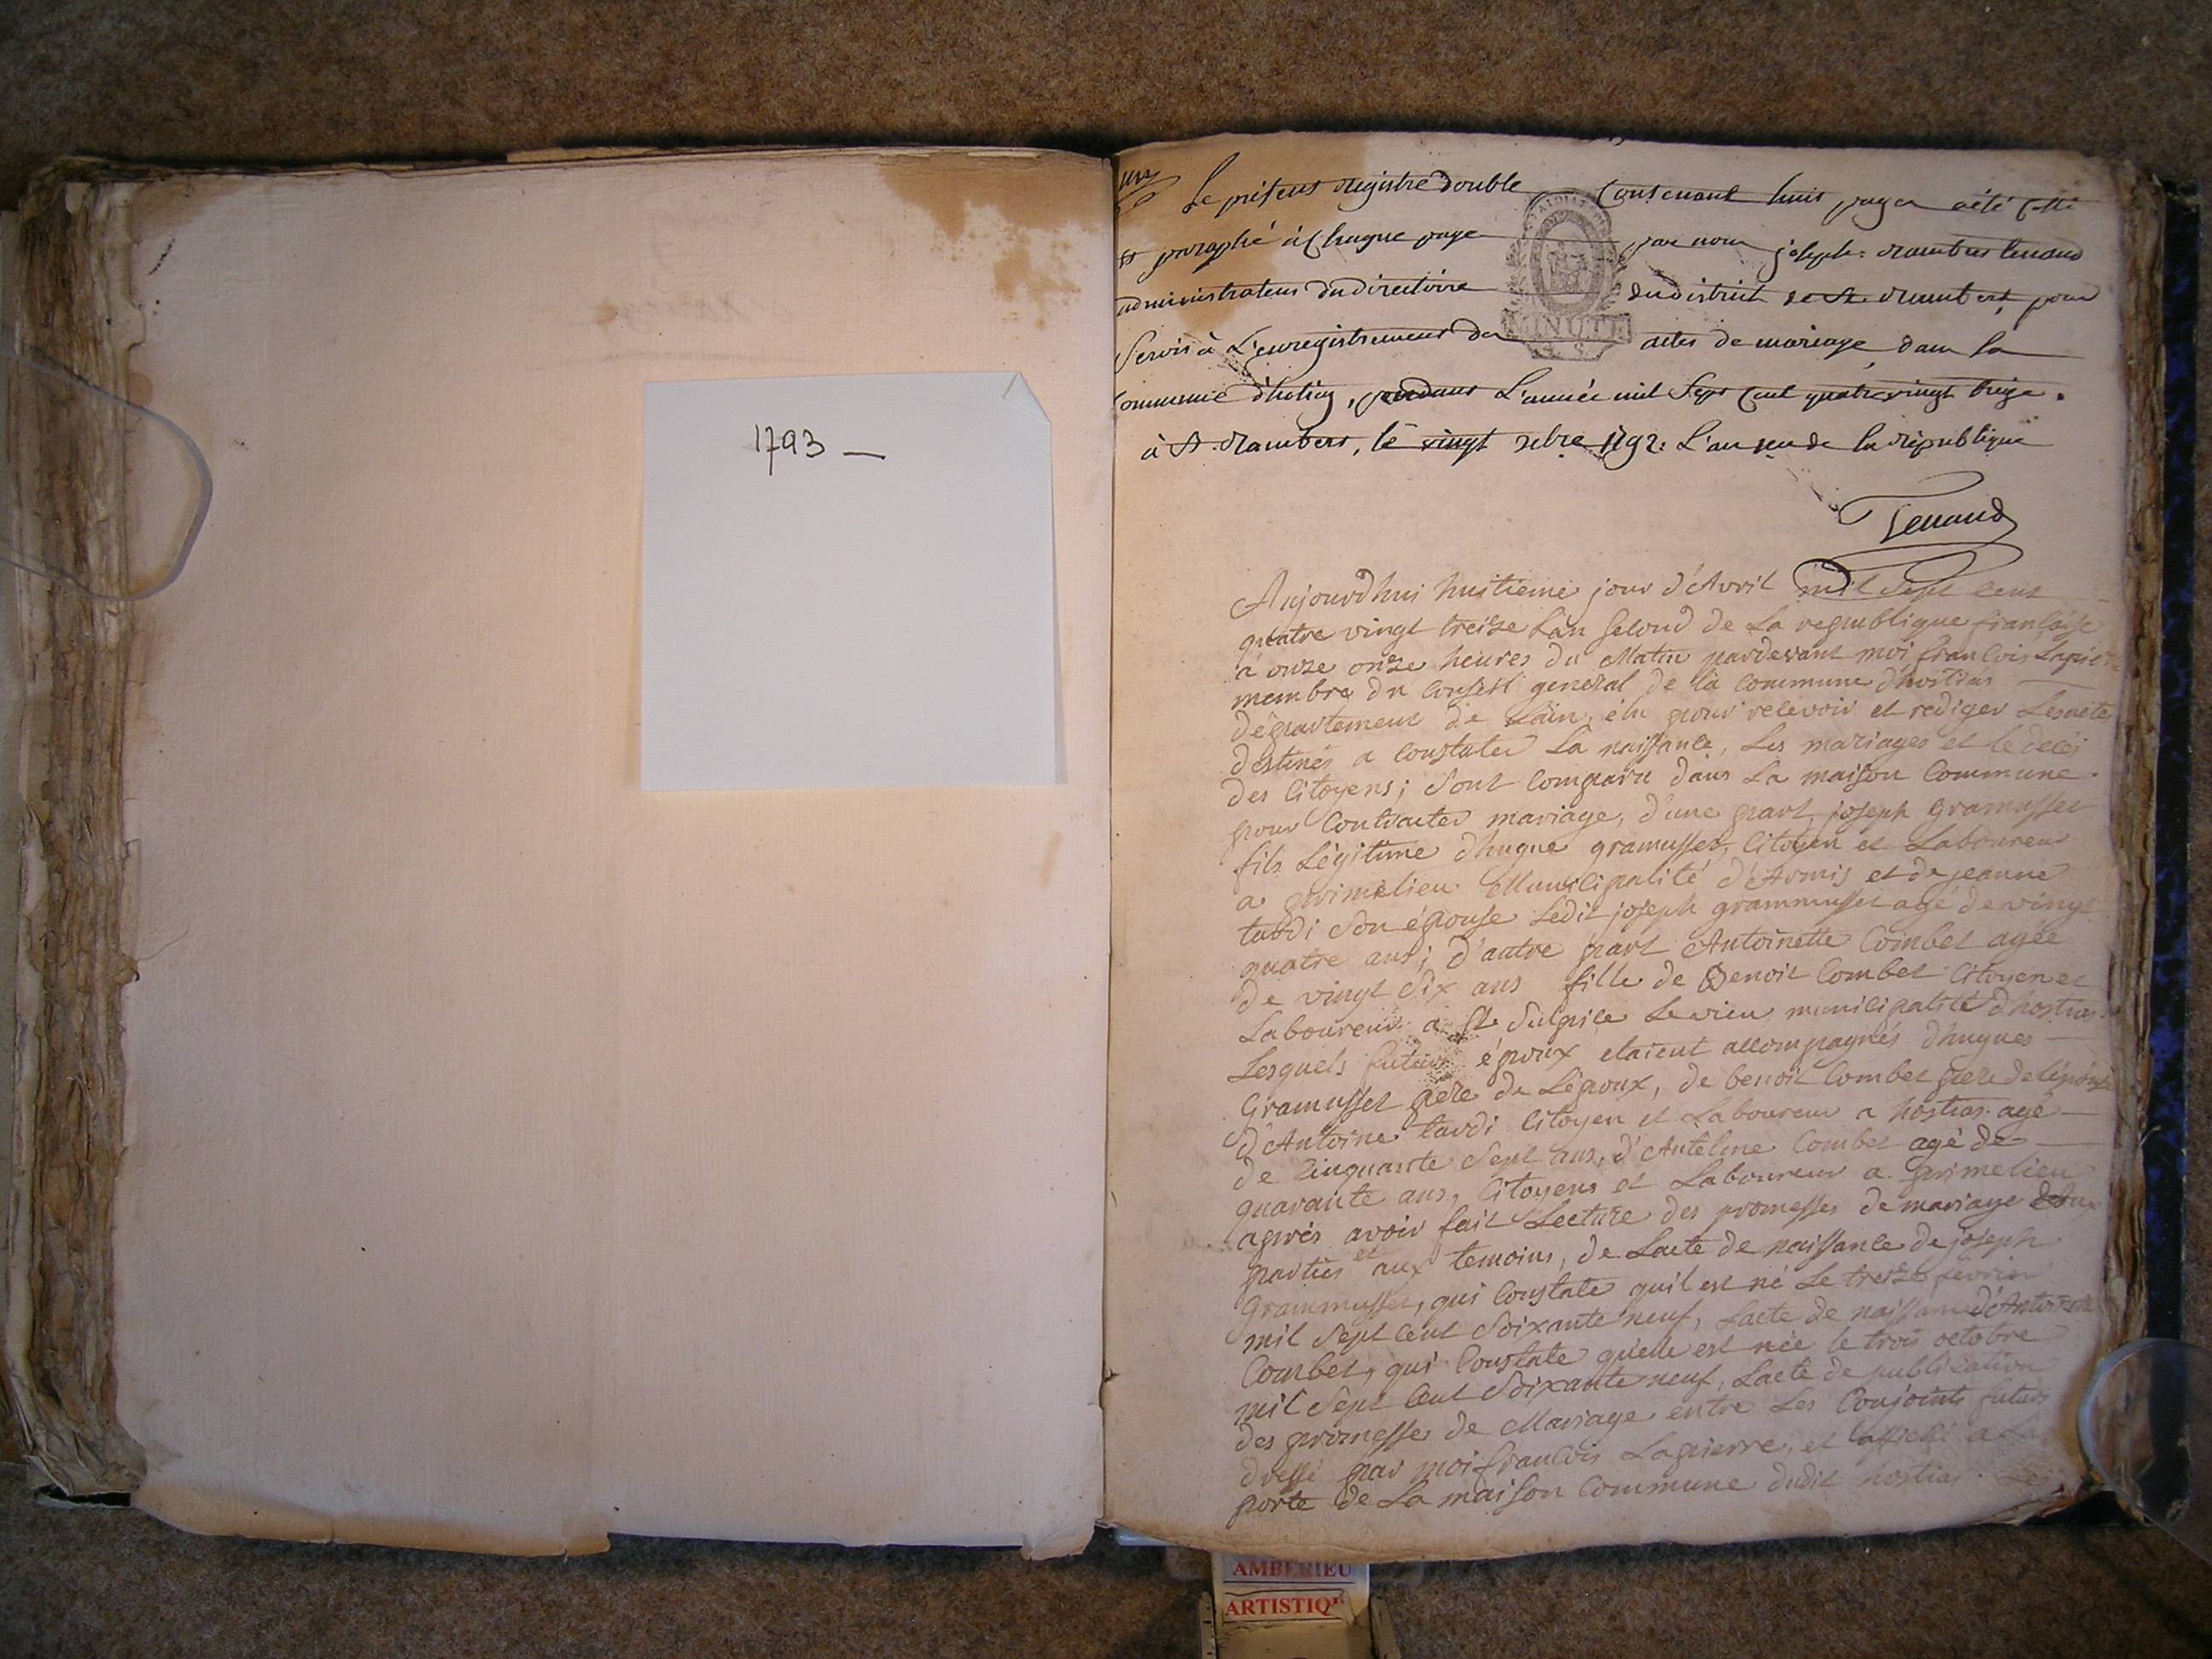 1793 —
un
Le présent registre double Contenant huit pages a été Cotté
et paraphé à Chaque page par nous joseph-rambert tenand
administrateur du directoire du district de St. rambert, pour
Servir à L'enregistrement des actes de mariage dans la
Commune d'hostias, pendant L'année mil Sept Cent quatrevingt treize.
à St. rambert, le vingt Xbre 1792. L'an 1er de la république
MINUTE
Tenand
Aujourdhui huitieme jour d'Avril mil Sept Cent
quatre vingt treize Lan Second de La republique francoise
a onze onze heures du Matin pardevant moi francois Lapierre
membre du Conseil general de la Commune d'hostias
département de Lain, élu pour recevoir et rediger Les actes
destinés a constater La naissance, Les mariages et le decés
des Citoyens; Sont comparu dans La maison Commune
pour Contracter mariage, d'une part, joseph gramusset
fils Légitime d'hugue gramusset, Citoyen et Laboureur
a primelieu Municipalité d'Armis et de jeanne
tardi Son épouse Ledit joseph grammusset agé de vingt
quatre ans; d'autre part Antoinette Combet agée
de vingt Six ans fille de Benoit Combet Citoyen et
Laboureur a St Sulpice Levieu municipalité d'hostias
Lesquels futurs époux etaient accompagnés d'hugues
Gramusset pere de Lépoux, de benoit Combet pere de Lépouse
d'Antoine tardi Citoyen et Laboureur a hostias agé
de Cinquante Sept ans, d'Antelme Combet agé de
quarante ans, Citoyens et Laboureur a primelieu
après avoir fait Lecture des promesses de mariage aux
parties et aux temoins, de Lacte de naissance de joseph
Grammusset, qui Constate quil est né Le treize fevrier
mil Sept Cent Soixante neuf, Lacte de naissance d'Antoinette
Combet, qui Constate quelle est née le trois octobre
mil Sept Cent Soixante neuf, Lacte de publication
des promesses de Mariage entre Les Conjoints futurs
dressé par moi francois Lapierre, et affiché a La
porte de La maison Commune dudit hostias. Le
AMBERIEU
ARTISTIQ